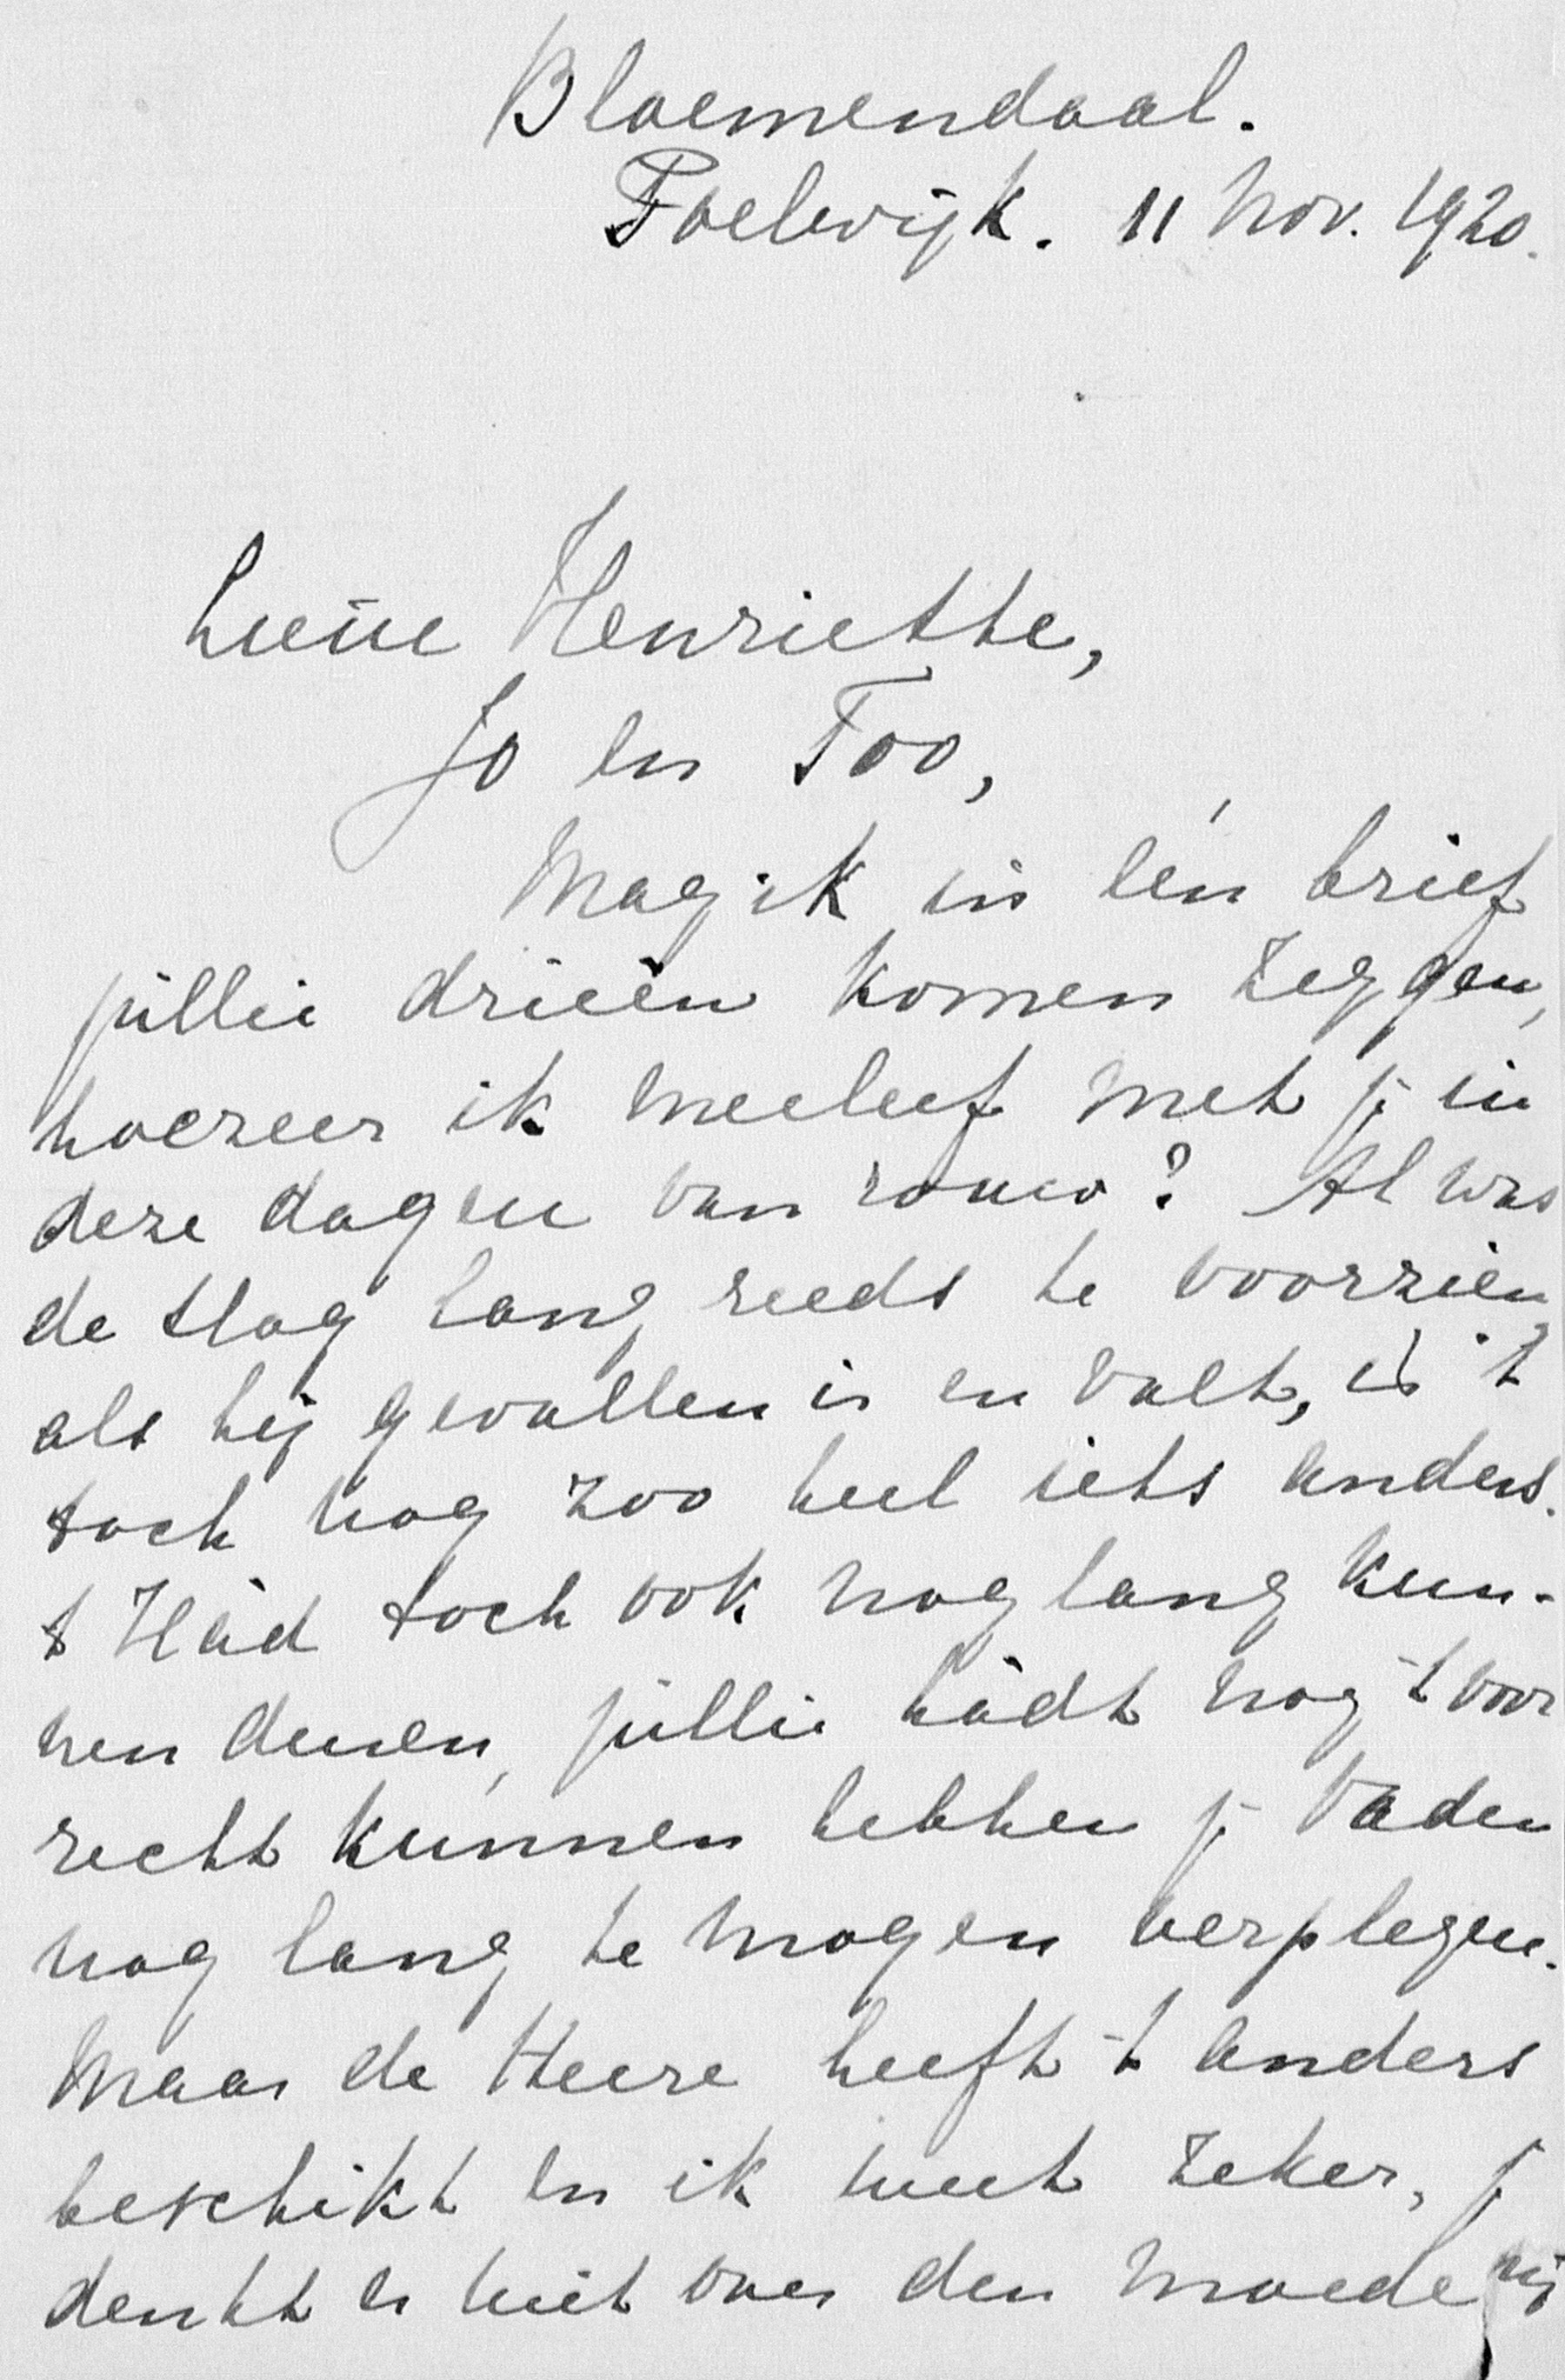 Bloemendaal.
Poelwijk. 11 Nov. 1920.
Lieve Henriette,
Jo en Too,
Mag ik in één brief
jullie drieën komen zeggen,
hoezeer ik meeleef met je in
deze dagen van rouw? Al was
de slag lang reeds te voorzien
als hij gevallen is en valt, is 't
toch nog zoo heel iets anders.
't Hád toch ook nog lang kun-
nen duren, jullie hádt nog 't voor
recht kunnen hebben je Vader
nog lang te mogen verplegen.
Maar de Heere heeft 't anders
beschikt en ik weet zeker, je
denkt er niet over den moede